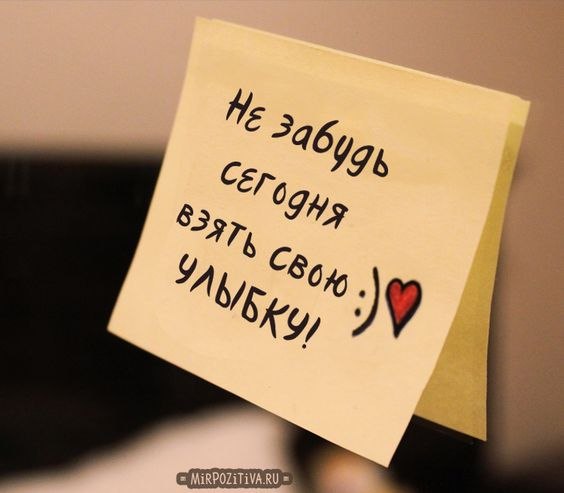 Не забудь
сегодня
взять свою
улыбку! :)
MiRPOZiTiVA.RU